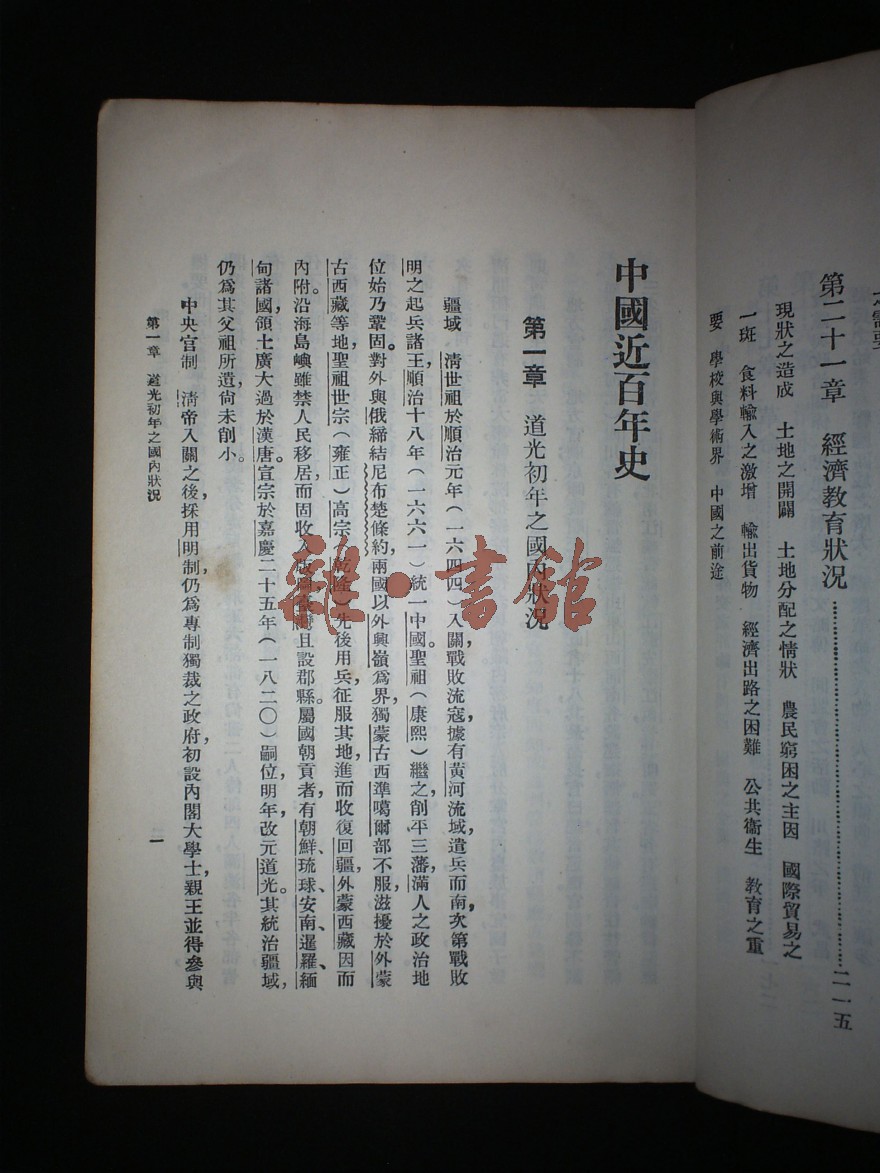 第二十一章 經濟教育狀況……………………………二一五
現狀之造成 土地之開闢 土地分配之情狀 農民窮困之主因 國際貿易之
一斑 食料輸入之激增 輸出貨物 經濟出路之困難 公共衞生 教育之重
要 學校與學術界 中國之前途
中國近百年史
第一章 道光初年之國內狀況
疆域 清世祖於順治元年(一六四四)入關,戰敗流寇,據有黃河流域,遣兵而南,次第戰敗
明之起兵諸王,順治十八年(一六六一)統一中國。聖祖(康熙)繼之,削平三藩,滿人之政治地
位始乃鞏固。對外與俄締結尼布楚條約,兩國以外興嶺爲界,獨蒙古西準噶爾部不服,滋擾於外蒙
古西藏等地,聖祖世宗(雍正)高宗(乾隆)先後用兵征服其地,進而收復回疆,外蒙西藏因而
內附。沿海島嶼雖禁人民移居,而固收入版圖,臺灣且設郡縣。屬國朝貢者,有朝鮮、琉球、安南、暹羅、緬
甸諸國,領土廣大過於漢唐。宣宗於嘉慶二十五年(一八二〇)嗣位,明年,改元道光。其統治疆域,
仍爲其父祖所遺,尙未削小。
中央官制 清帝入關之後,採用明制,仍爲專制獨裁之政府,初設內閣大學士,親王並得參與
第一章 道光初年之國內狀況
一
雜·書館